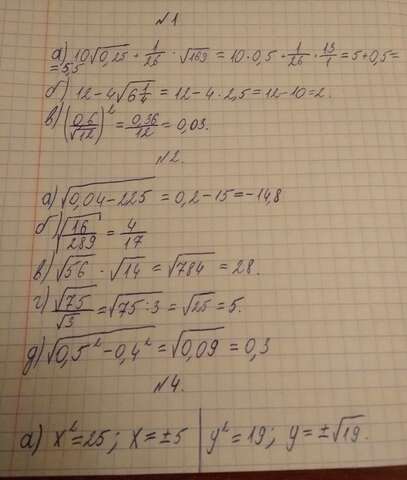 №1
а) 10√0,25 + 1/26 · √169 = 10 · 0,5 + 1/26 · 13/1 = 5 + 0,5 =
= 5,5
б) 12 - 4√6 1/4 = 12 - 4 · 2,5 = 12 - 10 = 2.
в) (0,6/√12)² = 0,36/12 = 0,03.
№2.
а) √0,04 - 225 = 0,2 - 15 = -14,8
б) √16/289 = 4/17
в) √56 · √14 = √784 = 28.
г) √75/√3 = √75 : 3 = √25 = 5.
д) √0,5² - 0,4² = √0,09 = 0,3
№4.
а) x² = 25; x = ±5 | y² = 19; y = ±√19.